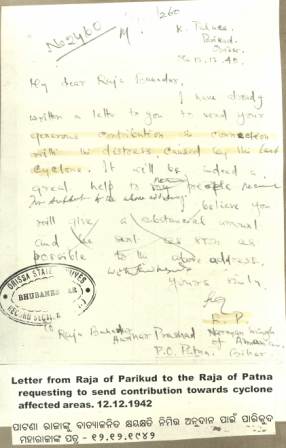 No 2460 M. /260
K. Palace
Parikud
12.12.42
My dear Raja Bahadur,
I have already
written a letter to you to send your
generous contribution in connection
with the distress caused by the last
cyclone. It will be indeed a
great help to people
In support of the above
believe you
will give a substancial amount
and be sent as soon as
possible to the above address.
With kind regards
Yours truly,
ORISSA STATE ARCHIVES
BHUBANESWAR
RECORD SECTION
Raja Bahadur
P.O. Patna. Bihar
Letter from Raja of Parikud to the Raja of Patna
requesting to send contribution towards cyclone
affected areas. 12.12.1942
ପାଟଣା ରାଜାଙ୍କୁ ବାତ୍ୟାଜନିତ କ୍ଷୟକ୍ଷତି ନିମିତ୍ତ ଅନୁଦାନ ପାଇଁ ପାରିକୁଦ
ମହାରାଜାଙ୍କ ପତ୍ର - ୧୨.୧୨.୧୯୪୨